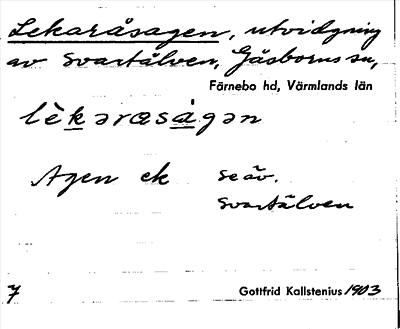 Lekaråsagen, utvidgning
av Svartälven, Gåsborns sn,
Färnebo hd, Värmlands län
lèkərasågən
Agen ek se äv.
Svartälven
7 Gottfrid Kallstenius 1903